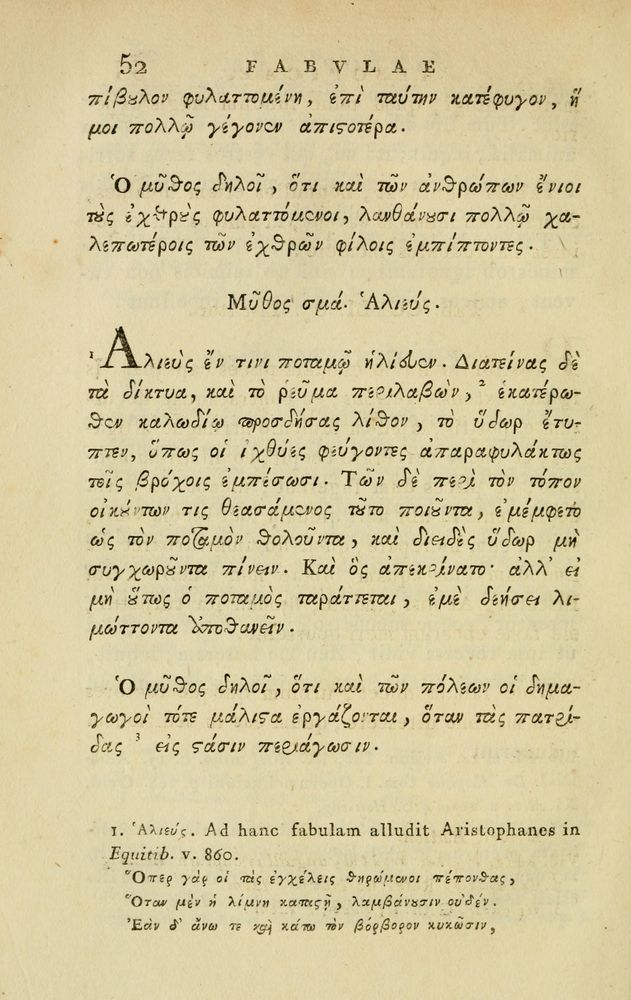 52 FABVLAE
πίβουλον φυλαττομένη, ἐπὶ ταύτην κατέφυγον, ἥ
μοι πολλῷ γέγονεν ἀπιστοτέρα.
Ὁ μῦθος δηλοῖ, ὅτι καὶ τῶν ἀνθρώπων ἔνιοι
τοὺς ἐχθροὺς φυλαττόμενοι, λανθάνουσι πολλῷ χα-
λεπωτέροις τῶν ἐχθρῶν φίλοις ἐμπίπτοντες.
Μῦθος σμά. Ἁλιεύς.
¹ Ἁλιεὺς ἔν τινι ποταμῷ ἡλίευεν. Διατείνας δὲ
τὰ δίκτυα, καὶ τὸ ῥεῦμα περιλαβὼν, ² ἑκατέρω-
θεν καλωδίῳ προσδήσας λίθον, τὸ ὕδωρ ἔτυ-
πτεν, ὅπως οἱ ἰχθύες φεύγοντες ἀπαραφυλάκτως
τοῖς βρόχοις ἐμπέσωσι. Τῶν δὲ περὶ τὸν τόπον
οἰκούντων τις θεασάμενος τοῦτο ποιοῦντα, ἐμέμφετο
ὡς τὸν ποταμὸν θολοῦντα, καὶ διειδὲς ὕδωρ μὴ
συγχωροῦντα πίνειν. Καὶ ὃς ἀπεκρίνατο· ἀλλ' εἰ
μὴ οὕτως ὁ ποταμὸς ταράττεται, ἐμὲ δεήσει λι-
μώττοντα ἀποθανεῖν.
Ὁ μῦθος δηλοῖ, ὅτι καὶ τῶν πόλεων οἱ δημα-
γωγοὶ τότε μάλιστα ἐργάζονται, ὅταν τὰς πατρί-
δας ³ εἰς στάσιν περιάγωσιν.
1. Ἁλιεύς. Ad hanc fabulam alludit Aristophanes in
Equitib. v. 860.
Ὅπερ γάρ οἱ τὰς ἐγχέλεις θηρώμενοι πέπονθας,
Ὅταν μὲν ἡ λίμνη καταστῇ, λαμβάνουσιν οὐδέν.
Ἐὰν δ' ἄνω τε καὶ κάτω τὸν βόρβορον κυκῶσιν,